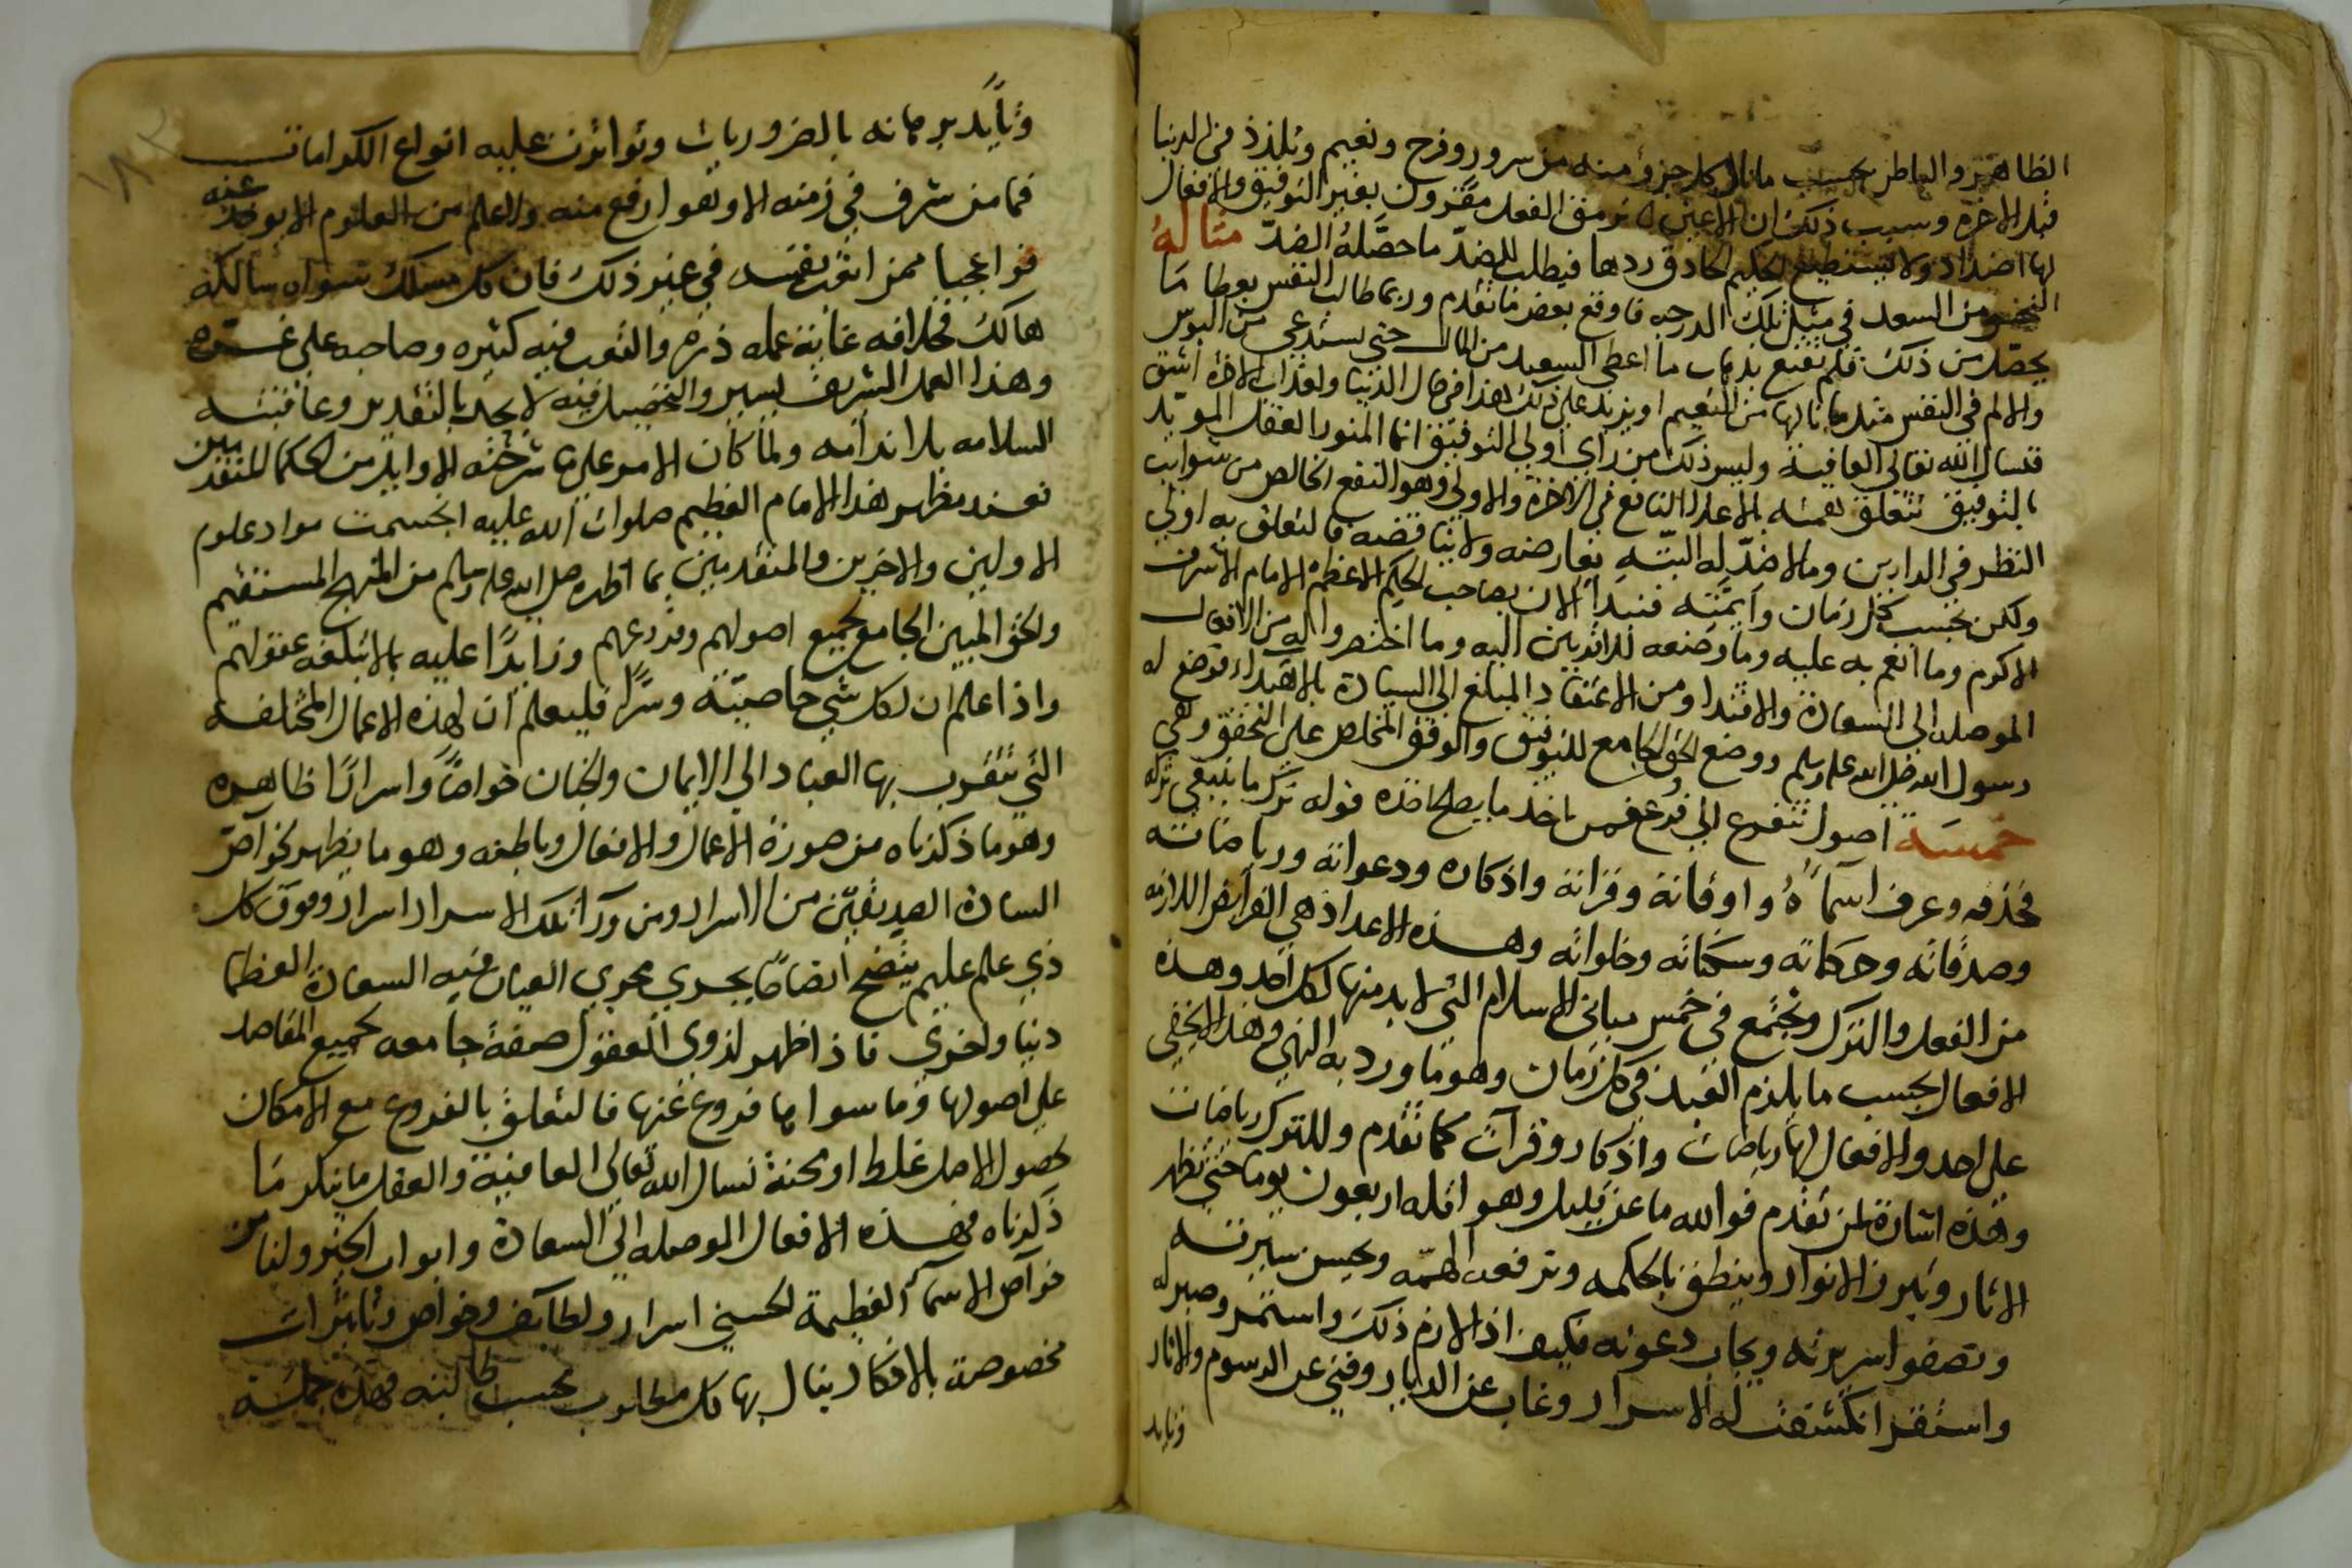 الظاهر والباطن بحسب ما نال كل جزؤ منه من سرور وفرح ونعيم وتلذذ في الدنيا
قبل الاخرة وسبب ذلك ان الاعين ترمق الفعل مقرون بغير التوفيق والافعال
لها اضداد ولا يستطيع الحكيم الحاذق ردها فيطلب للضدّ ما حصّله الضدّ مثاله
من السعد في مثل تلك الدرجه فاوقع بعض ما تقدم وربما طالب النفس بعطا ما
يحصل من ذلك فلم تقنع بذهاب ما اعطى السعيد من المال حتى يستدعى من البوس
والالم في النفس مثل ما نالها من النعيم او يزيد على ذلك هذا في حال الدنيا ولعذاب الاخرة اشق
فنسال الله تعالى العافية وليس ذلك من راي اولي التوفيق انما المنور العقل المويد
بالتوفيق تتعلق همته بالاعداد النافع في الاخرة والاولى وهو النفع الخالص من شوايب
النظر في الدارين وما لا ضدّ له البتّه يعارضه ولا يناقضه فالتعلق به اولى
ولكن بحسب كل زمان وايمّته فنبدأ الان بصاحب الحكيم الاعظم الامام الاشرف
الاكرم وما انعم به عليه وما وضعه للاقربين اليه وما اختصر واله من الافعال
الموصله الى السعادة والاقتدا ومن الاعتقاد المبلغ الى السيادة بالاهتداء فوضع له
رسول الله صلى الله عليه وسلم ووضع الحق الجامع للتوفيق والوفق المخلص على التحقق وهي
خمسة اصول تتفرع الى فروع فمن ياخذ ما يصلح اخذه قوله ترك ما ينبغي تركه
فحذفه وعرف اسماءهُ واوقاته وقراته واذكاره ودعواته ورياضاته
وصدقاته وحركاته وسكناته وخلواته وهذه الاعداد هي الفرايض اللازمه
من الفعل والترك وتجتمع في خمس مباني الاسلام التي لا بد منها لكل احد وهذه
الافعال بحسب ما يلزم العبد في كل زمان وهو ما ورد به النهي وهذا لا يخفى
على احد والافعال لها رياضات واذكار وقرآت كما تقدم وللترك رياضات
وهذه اشارة لمن تقدم فوالله ما عن قليل وهو اقله اربعون يوما حتى تظهر
الاثار وتبرز الانوار وينطق بالحكمه وترفعه الهمّه ويحسن سيرته
وتصفوا سريرته ويجاب دعوته فكيف اذا لازم ذلك واستمر وصبر له
واستقر انكشفت له الاسرار وغاب عن الديار وفني عن الرسوم والاثار
وتايد
وتأيّد برهانه بالضروريات وتواترت عليه انواع الكرامات
فما من شرف في زمنه الا وهو ارفع منه ولا علم من العلوم الا يوخذ عنه
فواعجبا ممن اتعب نفسه في غير ذلك فان كل مسلك سواه سالكه
هالك فخلافه غاية عمله ذرة والتعب فيه كثيره وصاحبه على غرّه
وهذا العمل الشريف يسير والتحصيل فيه لا يحد بالتقدير وعاقبته
السلامه بلا ندامه ولما كان الامر على ما شرحته الاوايل من الحكما المتقدمين
فعند مظهر هذا الامام العظيم صلوات الله عليه انحسمت مواد علوم
الاولين والاخرين والمتقدمين بما اظهره صلى الله عليه وسلم من المنهج المستقيم
والحق المبين الجامع لجميع اصولهم وفروعهم وزايدًا عليه بما لا تبلغه عقولهم
واذا علم ان لكل شي خاصيّة وسرًّا فليعلم ان لهذه الاعمال المختلفه
التي تتقرب بها العباد الى الايمان والجنان خواصًا واسرارًا ظاهره
وهو ما ذكرناه من صورة الاعمال والافعال وباطنه وهو ما يظهر لخواصّ
السادة الصديقين من الاسرار ومن ورآ تلك الاسرار اسرار وفوق كل
ذي علم عليم يتضح اتضاحًا يجري مجرى العيان فيه السعادة العظما
دنيا واخرى فاذا ظهر لذوي العقول صفة جامعه لجميع المقاصد
على اصولها وما سواها فروع عنها فالتعلق بالفروع مع الامكان
لحصول الاصل غلط او محنة نسال الله تعالى العافية والعقل ما ينكر ما
ذكرناه فهذه الافعال الموصله الى السعادة وابواب الخير ولنا من
خوآص الاسمآ العظيمة الحسنى اسرار ولطايف وخواص وتاثيرات
مخصوصة بالافكار ينال بها كل مطلوب بحسب طالبه فهذه جملة